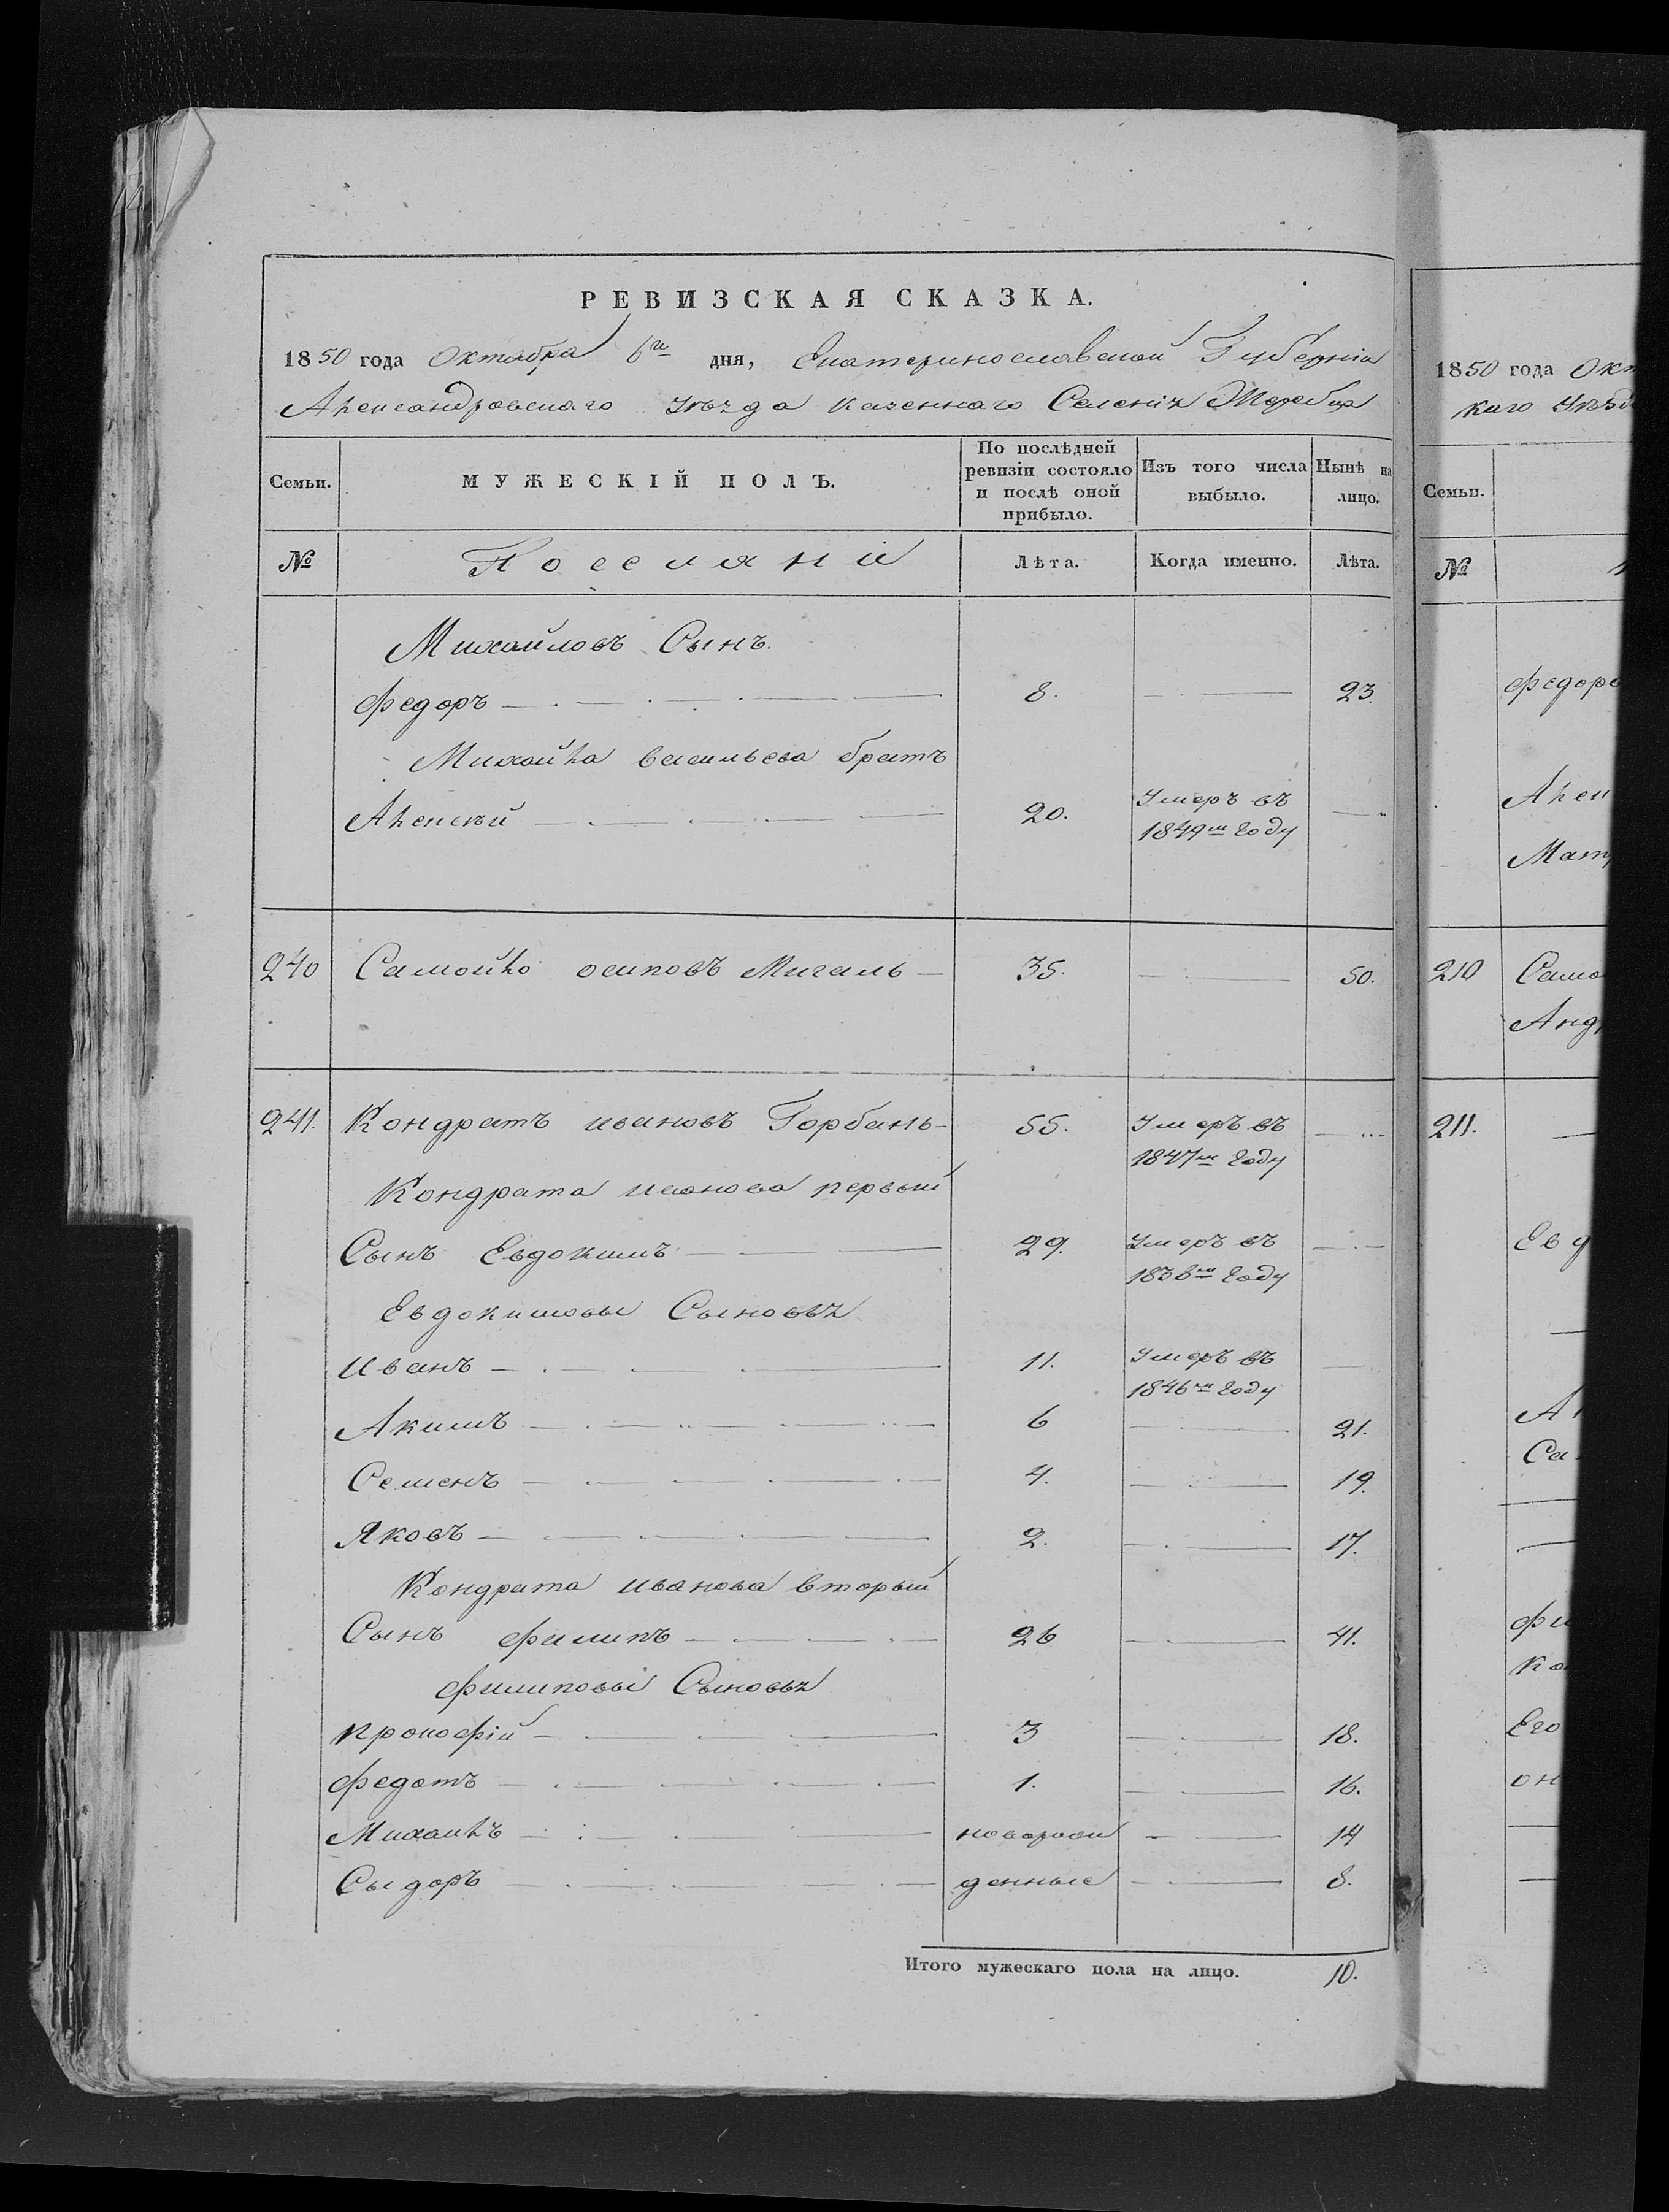 РЕВИЗСКАЯ СКАЗКА.
1850 года Октября 6го дня, Екатеринославской Губерніи
Александровскаго уѣзда казеннаго Селенія Жеребца
Семьи.
МУЖЕСКІЙ ПОЛЪ.
По послѣдней ревизіи состояло и послѣ оной прибыло.
Изъ того числа выбыло.
Нынѣ на лицо.
№
Поселяне
Лѣта.
Когда именно.
Лѣта.
Михайловъ Сынъ.
Федоръ 8. 23.
Михайла Васильева братъ
Алексѣй 20. Умеръ въ
1849м Году
240 Самойло осиповъ Мигаль 35. 50.
241. Кондратъ ивановъ Горбань 55. Умеръ въ
1847м Году
Кондрата иванова первый
Сынъ Евдокимъ 29. Умеръ въ
1836м Году
Евдокимовы Сыновья
Иванъ 11. Умеръ въ
1846м Году
Акимъ 6 21.
Семенъ 4. 19.
Яковъ 2. 17.
Кондрата иванова вторый
Сынъ филипъ 26 41.
филиповы Сыновья
Прокофій 3 18.
федотъ 1. 16.
Михаилъ новорож 14
Сыдоръ денные 8.
Итого мужескаго пола на лицо. 10.
1850 года Окт
каго Уѣзд
Семьи.
№
федоро
Алек
Мат
210 Само
Анд
211.
Евд
Са
фи
Ко
Его
он